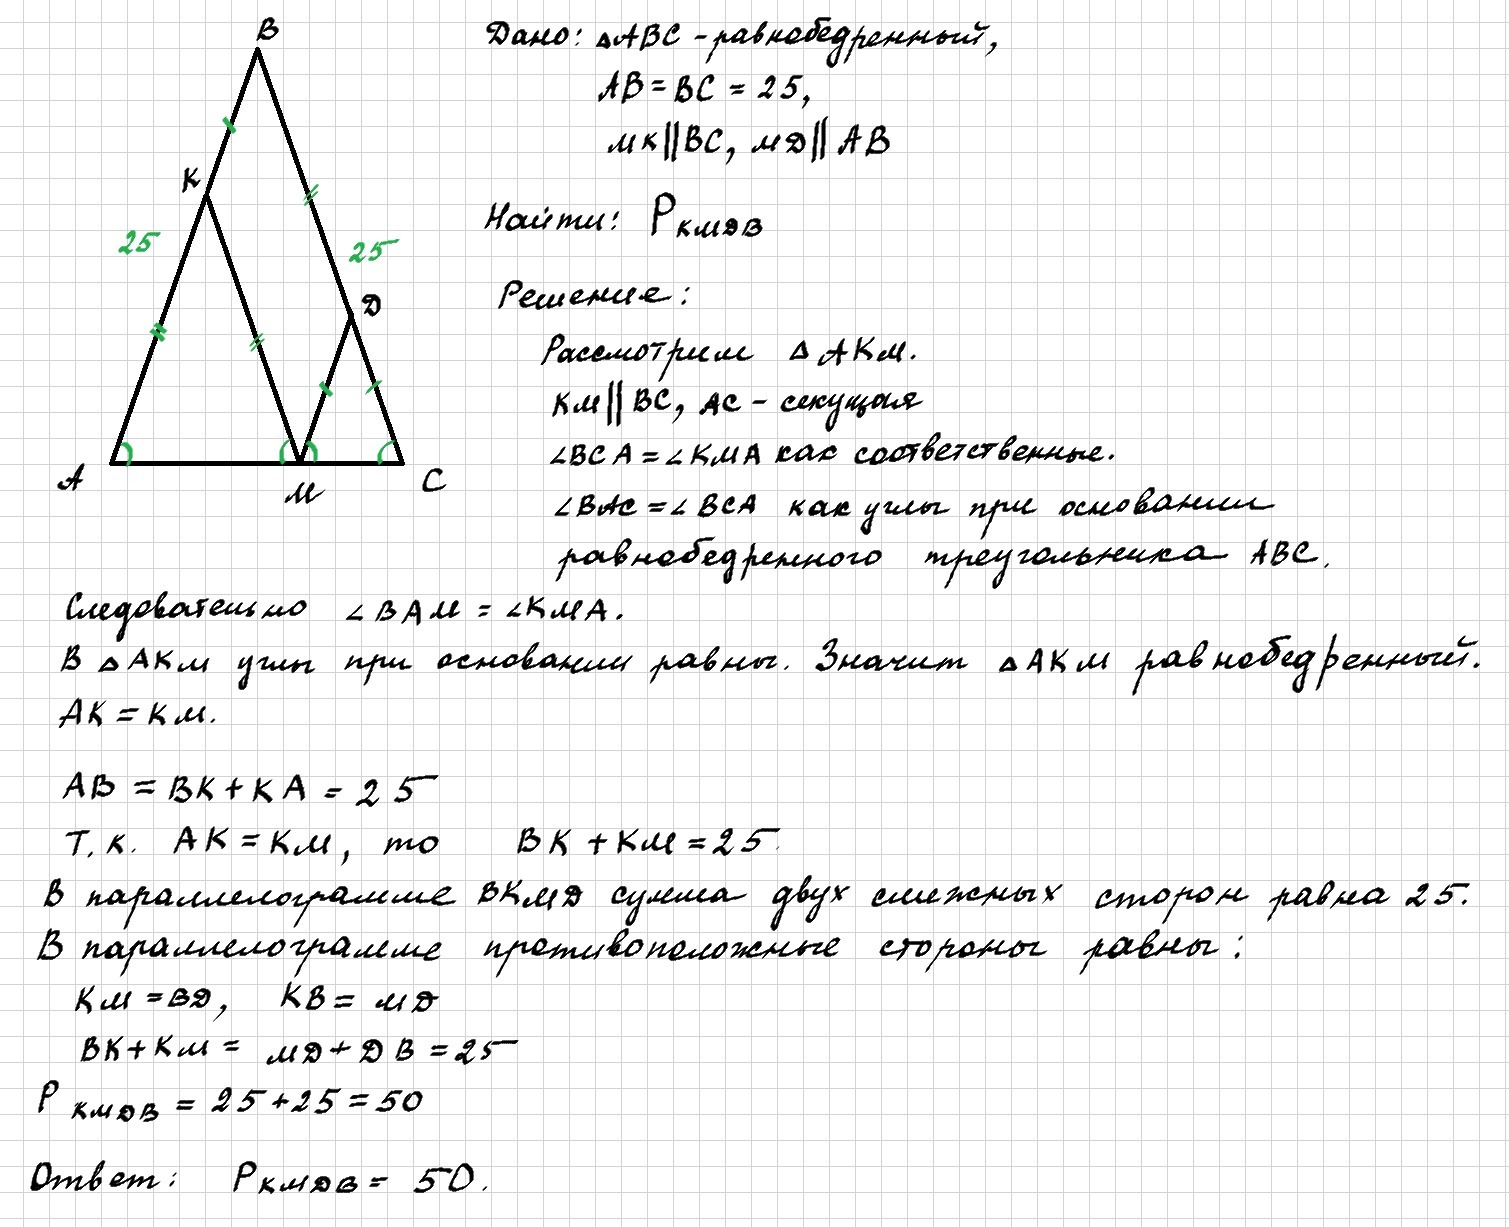 B
K
25
25
D
A
M
C
Дано: △ABC - равнобедренный,
AB = BC = 25,
MK || BC, MD || AB
Найти: P KMDB
Решение:
Рассмотрим △ AKM.
KM || BC, AC - секущая
∠BCA = ∠KMA как соответственные.
∠BAC = ∠BCA как углы при основании
равнобедренного треугольника ABC.
Следовательно ∠BAM = ∠KMA.
В △AKM углы при основании равны. Значит △AKM равнобедренный.
AK = KM.
AB = BK + KA = 25
Т.к. AK = KM, то BK + KM = 25
В параллелограмме BKMD сумма двух смежных сторон равна 25.
В параллелограмме противоположные стороны равны:
KM = BD, KB = MD
BK + KM = MD + DB = 25
P KMDB = 25 + 25 = 50
Ответ: P KMDB = 50.